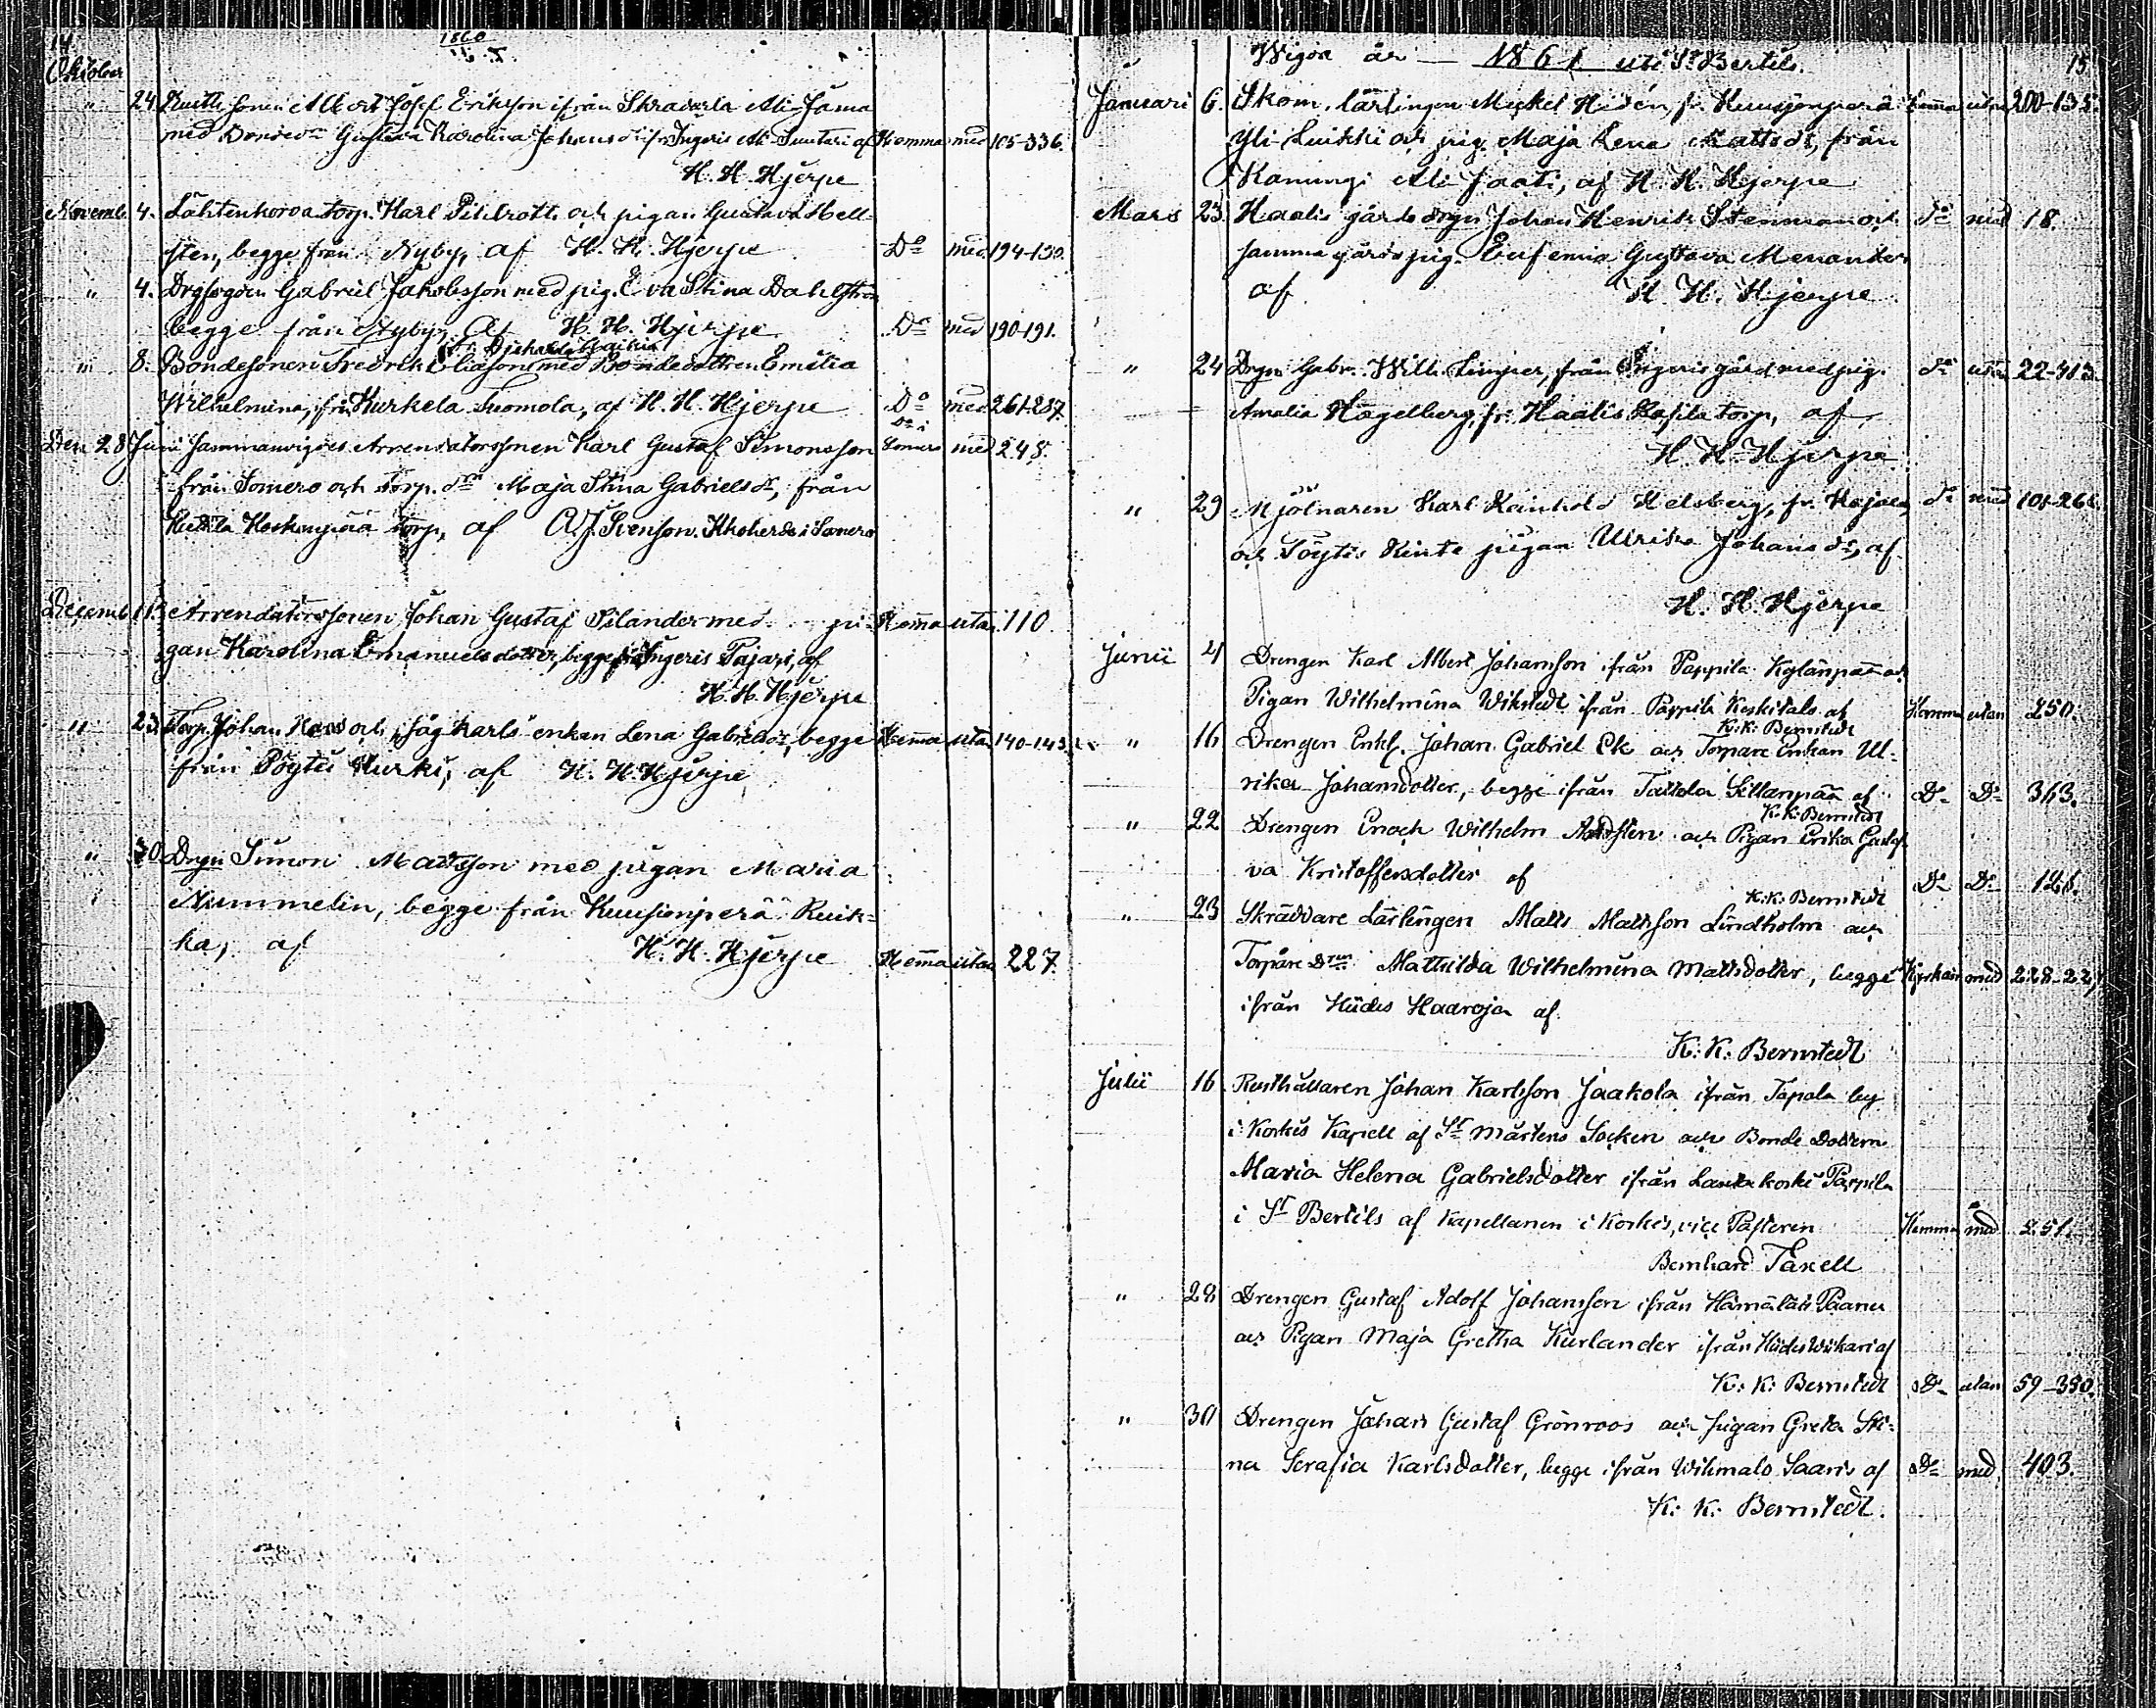 14
1860
Oktober
" 24. Rusth. sonen Albert Josef Eriksson ifrån Skravarla Ali Jama
med Bondedn Gustava Karolina Johansdr fr. Ingeris Ali Suutari af Hemma med 105-336.
H. H. Hjerpe
Novemb. 4. Lähtenkorva torp. Karl Pihlrooth och pigan Gustava Hell-
sten, begge från Nyby, af H. H. Hjerpe Do med 194-130.
" 4. Drgsogden Gabriel Jakobsson med pig. Eva Stina Dahlström
begge från Nyby, af H. H. Hjerpe Do med 190-191.
" 8. Bondesonen Fredrik Eliasson med Bondedottren Emilia
Wilhelmina, från Kurkela Tuomola, af H. H. Hjerpe Do med 261-287.
Den 28 Junii sammanvigdes Arrendatorssonen Karl Gustaf Simonsson Somero med 248.
från Somero och Torp. drn Maja Stina Gabrielsdr, från
Kuttila Koskenpää torp, af A. J. Svenson. Kkoherde i Somero
Decemb. 11. Arrendatorssonen Johan Gustaf Silander med pi- Hemma utan 110.
gan Karolina Emanuelsdotter, begge från Ingeris Pajari, af
H. H. Hjerpe
" 23. Torp. Johan och Karls enkan Lena Gabrielsdr, begge Hemma utan 140-143.
från Pöytis Kurki, af H. H. Hjerpe
" 30. Drgn Simon Matsson med pigan Maria
Nummelin, begge från Kuusjonperä Ruik-
ka, af H. H. Hjerpe Hemma utan 227.
Wigde år 1861 uti St Bertils. 15
Januari 6. Skom. lärlingen Mickel Hidén, fr. Kuusjonperä Hemma utan 200-135.
Yli-Luikki och pig. Maja Lena Mattsdr, från
Kanungi Ali Jaati, af H. H. Hjerpe
Mars 23. Haalis gårds drgn Johan Henrik Stenman och do med 18.
samma gårds pig. Eufemia Gustava Menander
af H. H. Hjerpe
" 24 Drgn Gabr. Wilh. Limper, från Ingeris gård med pig. do utan 22-413.
Amalia Hagelberg, fr. Haalis Kasila torp, af
H. H. Hjerpe
" 29 Mjölnaren Karl Reinhold Helsberg, fr. Kojola do med 101-261.
och Pöytis Kinte pigan Ulrika Johansdr, af
H. H. Hjerpe
Junii 4 Drengen Karl Albert Johansson ifrån Pappila Kylänpää och
Pigan Wilhelmina Wikstedt ifrån Pappila Keskitalo af Hemma utan 250.
K: K: Bernstedt
" 16 Drengen Enkl. Johan Gabriel Ek och Torpare Enkan Ul-
rika Johansdotter, begge ifrån Tattela Sillanpää af Do Do 363.
K: K: Bernstedt
" 22 Drengen Enoch Wilhelm och Pigan Erika Gusta-
va Kristoffersdotter af Do Do 121.
K: K: Bernstedt
" 23 Skräddare Lärlingen Matts Mattsson Lindholm och
Torpare Dren Mathilda Wilhelmina Mattsdotter, begge Kyrkan med 228-22,
ifrån Hiides Haaroja af
K: K: Bernstedt
Julii 16 Rusthållaren Johan Karlsson Jaakola ifrån Tapala by
i Koskis Kapell af St Mårtens Socken och Bonde Dottern
Maria Helena Gabrielsdotter ifrån Lautakoski Pappila
i St Bertils af Kapellanen i Koskis, vice Pastoren Hemma med 251.
Bernhard Taxell
" 28 Drengen Gustaf Adolf Johansson ifrån Hämäläis Paanu
och Pigan Maja Gretha Kurlander ifrån Hiides Wiikari af
K: K: Bernstedt Do utan 59-380.
" 30 Drengen Johan Gustaf Grönroos och Pigan Greta Sti-
na Serafia Karlsdotter, begge ifrån Wihmalo Saaris af Do med 403.
K: K: Bernstedt.